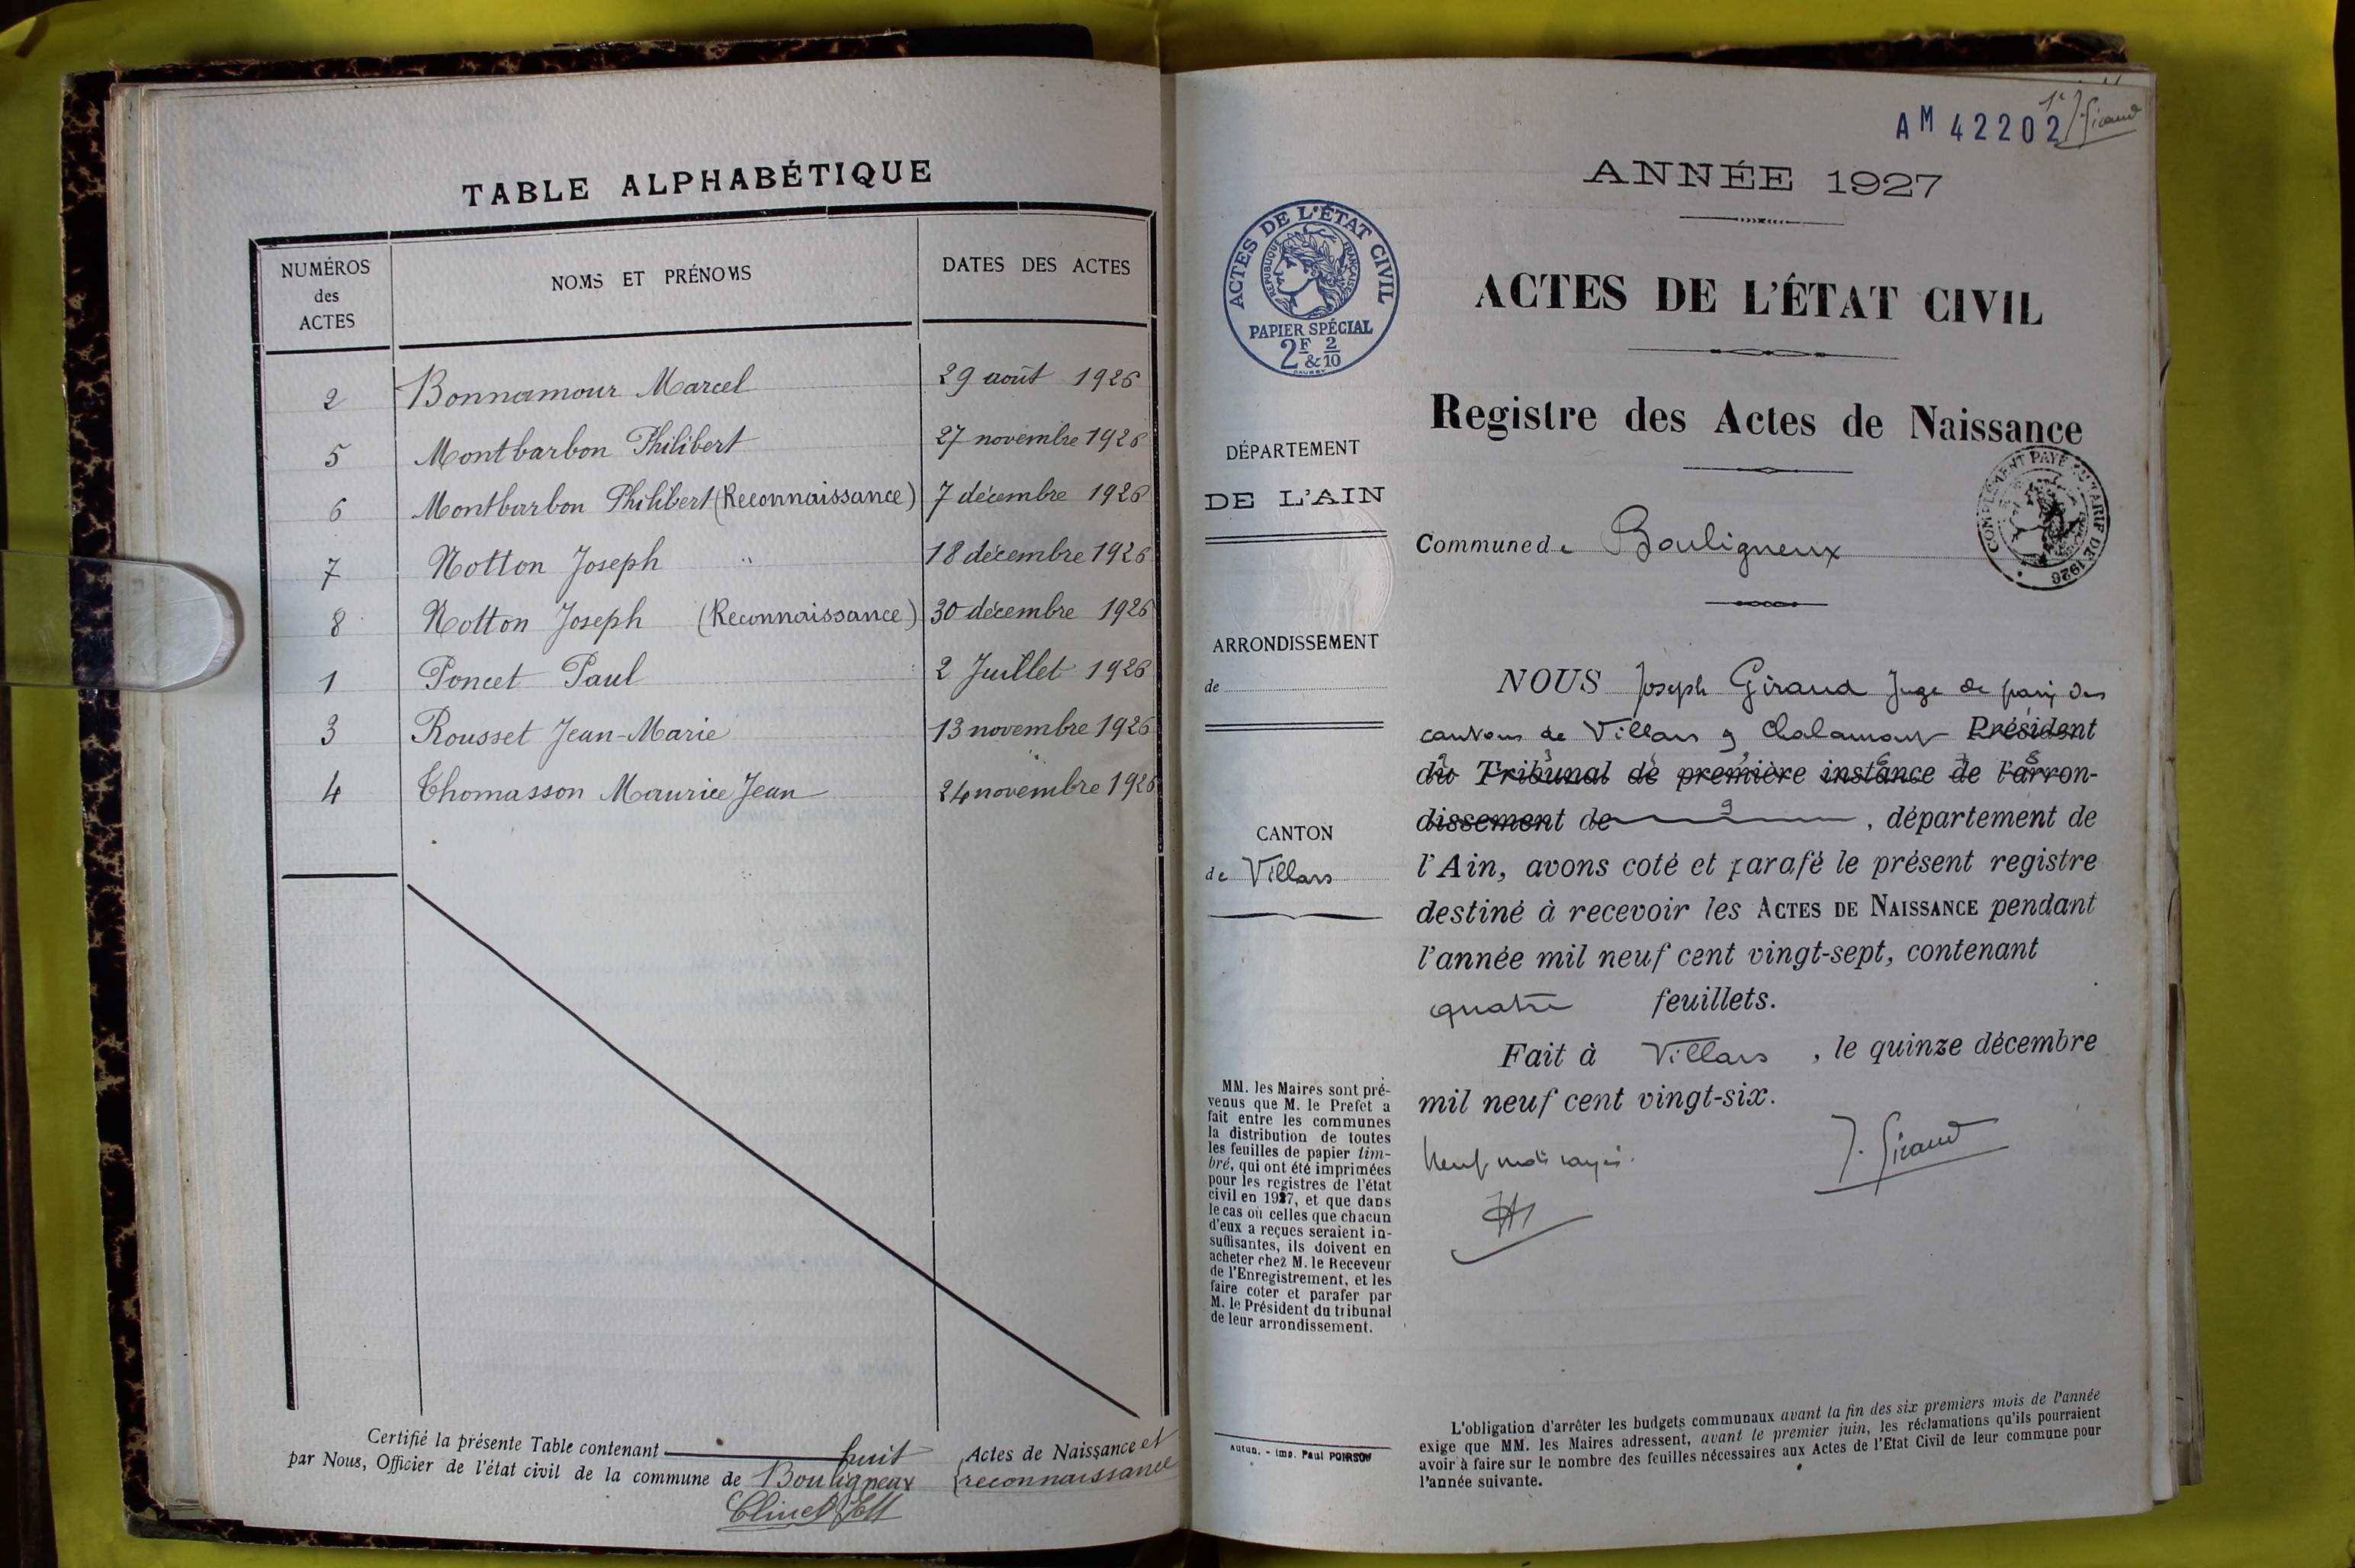 TABLE ALPHABÉTIQUE
NUMÉROS des ACTES
NOMS ET PRÉNOMS
DATES DES ACTES
2 Bonnamour Marcel 29 août 1926
5 Montbarbon Philibert 27 novembre 1926
6 Montbarbon Philibert (Reconnaissance) 7 décembre 1926
7 Notton Joseph " 18 décembre 1926
8 Notton Joseph (Reconnaissance) 30 décembre 1926
1 Poncet Paul 2 Juillet 1926
3 Rousset Jean-Marie 13 novembre 1926
4 Thomasson Maurice Jean 24 novembre 1926
Certifié la présente Table contenant huit Actes de Naissance et
par Nous, Officier de l'état civil de la commune de Bouligneux reconnaissance
AM 42202
1er J. Giraud
ANNÉE 1927
ACTES DE L'ÉTAT CIVIL
RÉPUBLIQUE FRANÇAISE
PAPIER SPÉCIAL
2F & 2/10
ACTES DE L'ÉTAT CIVIL
Registre des Actes de Naissance
COMPLÉMENT PAYÉ AU TARIF DE 1926
DÉPARTEMENT
DE L'AIN
Commune de Bouligneux
ARRONDISSEMENT
de
CANTON
de Villars
NOUS Joseph Giraud Juge de paix des
cantons de Villars & Chalamont Président
du Tribunal de première instance de l'arron-
dissement de , département de
l'Ain, avons coté et parafé le présent registre
destiné à recevoir les ACTES DE NAISSANCE pendant
l'année mil neuf cent vingt-sept, contenant
quatre feuillets.
Fait à Villars , le quinze décembre
mil neuf cent vingt-six.
Neuf mots rayés.
J. Giraud
MM. les Maires sont pré-
venus que M. le Préfet a
fait entre les communes
la distribution de toutes
les feuilles de papier tim-
bré, qui ont été imprimées
pour les registres de l'état
civil en 1927, et que dans
le cas où celles que chacun
d'eux a reçues seraient in-
suffisantes, ils doivent en
acheter chez M. le Receveur
de l'Enregistrement, et les
faire coter et parafer par
M. le Président du tribunal
de leur arrondissement.
Autun. - Imp. Paul POIRSON
L'obligation d'arrêter les budgets communaux avant la fin des six premiers mois de l'année
exige que MM. les Maires adressent, avant le premier juin, les réclamations qu'ils pourraient
avoir à faire sur le nombre des feuilles nécessaires aux Actes de l'Etat Civil de leur commune pour
l'année suivante.